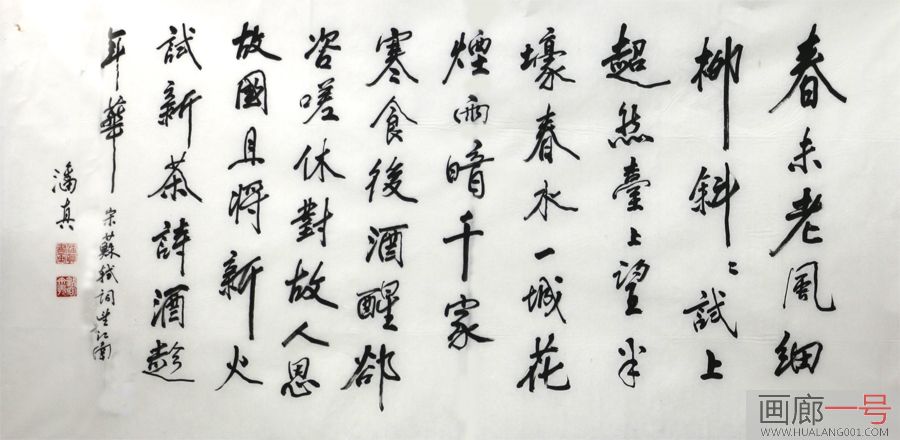 春未老風細
柳斜〻試上
超然臺上望半
壕春水一城花
煙雨暗千家
寒食後酒醒郤
咨嗟休對故人思
故國且將新火
試新茶詩酒趁
年華
宋蘇軾詞望江南
潘真
画廊一号
WWW.HUALANG001.COM